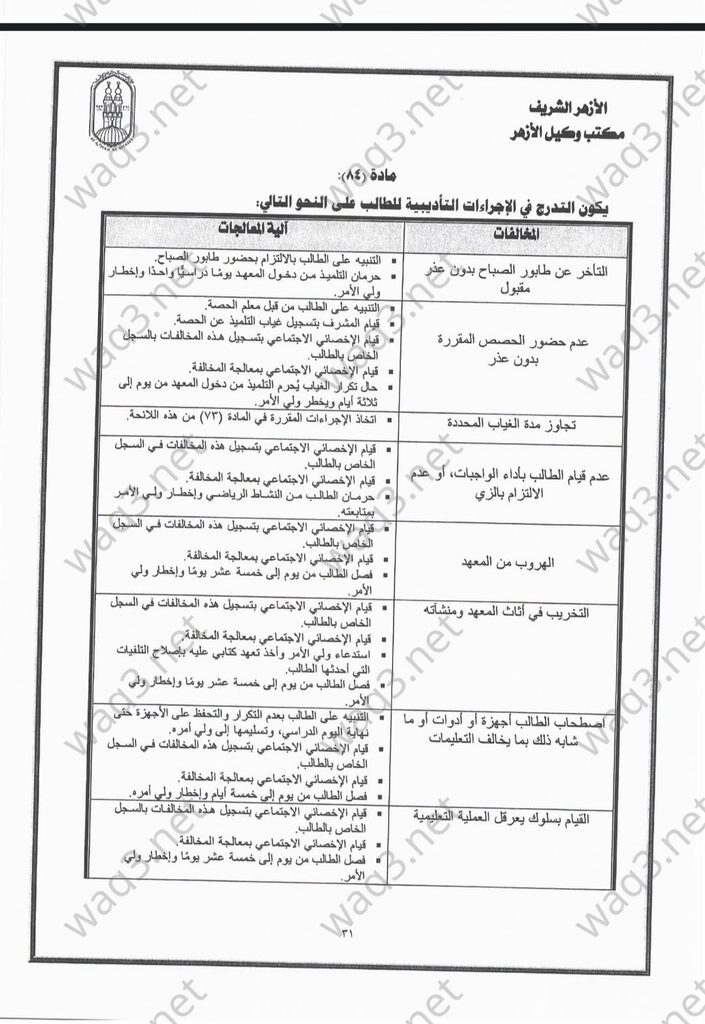 الأزهر الشريف
مكتب وكيل الأزهر
مادة (٨٤):
يكون التدرج في الإجراءات التأديبية للطالب على النحو التالي:
المخالفات
آلية المعالجات
التأخر عن طابور الصباح بدون عذر
مقبول
▪ التنبيه على الطالب بالالتزام بحضور طابور الصباح.
▪ حرمان التلميذ من دخول المعهد يومًا دراسيًا واحدًا وإخطار
ولي الأمر.
عدم حضور الحصص المقررة
بدون عذر
▪ التنبيه على الطالب من قبل معلم الحصة.
▪ قيام المشرف بتسجيل غياب التلميذ عن الحصة.
▪ قيام الإخصائي الاجتماعي بتسجيل هذه المخالفات بالسجل
الخاص بالطالب.
▪ قيام الإخصائي الاجتماعي بمعالجة المخالفة.
▪ حال تكرار الغياب يُحرم التلميذ من دخول المعهد من يوم إلى
ثلاثة أيام ويخطر ولي الأمر.
تجاوز مدة الغياب المحددة
▪ اتخاذ الإجراءات المقررة في المادة (٧٣) من هذه اللائحة.
عدم قيام الطالب بأداء الواجبات، أو عدم
الالتزام بالزي
▪ قيام الإخصائي الاجتماعي بتسجيل هذه المخالفات في السجل
الخاص بالطالب.
▪ قيام الإخصائي الاجتماعي بمعالجة المخالفة.
▪ حرمان الطالب من النشاط الرياضي وإخطار ولي الأمر
بمتابعته.
الهروب من المعهد
▪ قيام الإخصائي الاجتماعي بتسجيل هذه المخالفات في السجل
الخاص بالطالب.
▪ قيام الإخصائي الاجتماعي بمعالجة المخالفة.
▪ فصل الطالب من يوم إلى خمسة عشر يومًا وإخطار ولي
الأمر.
التخريب في أثاث المعهد ومنشآته
▪ قيام الإخصائي الاجتماعي بتسجيل هذه المخالفات في السجل
الخاص بالطالب.
▪ قيام الإخصائي الاجتماعي بمعالجة المخالفة.
▪ استدعاء ولي الأمر وأخذ تعهد كتابي عليه بإصلاح التلفيات
التي أحدثها الطالب.
▪ فصل الطالب من يوم إلى خمسة عشر يومًا وإخطار ولي
الأمر.
اصطحاب الطالب أجهزة أو أدوات أو ما
شابه ذلك بما يخالف التعليمات
▪ التنبيه على الطالب بعدم التكرار والتحفظ على الأجهزة حتى
نهاية اليوم الدراسي، وتسليمها إلى ولي أمره.
▪ قيام الإخصائي الاجتماعي بتسجيل هذه المخالفات في السجل
الخاص بالطالب.
▪ قيام الإخصائي الاجتماعي بمعالجة المخالفة.
▪ فصل الطالب من يوم إلى خمسة أيام وإخطار ولي أمره.
القيام بسلوك يعرقل العملية التعليمية
▪ قيام الإخصائي الاجتماعي بتسجيل هذه المخالفات بالسجل
الخاص بالطالب.
▪ قيام الإخصائي الاجتماعي بمعالجة المخالفة.
▪ فصل الطالب من يوم إلى خمسة عشر يومًا وإخطار ولي
الأمر.
٣١
waq3.net